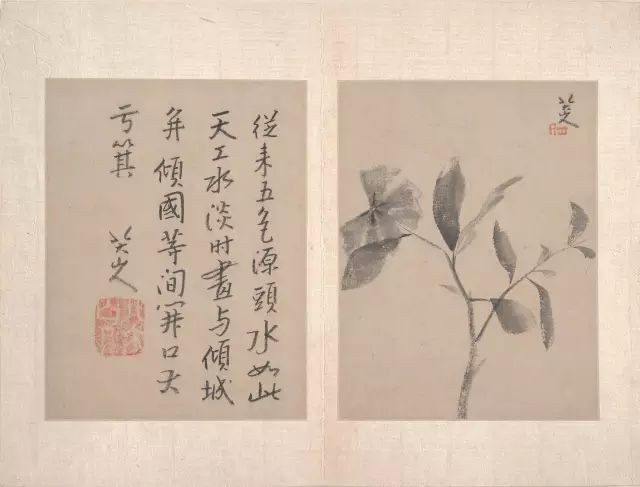 從来五色源頭水如此
天工水淡时畫与傾城
并傾國等间开口大
亏箕
八大山人
八大山人